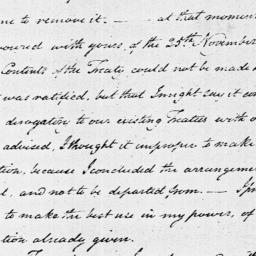 me to remove it. — — at that moment
with yours of the 25th November
Contents of the Treaty could not be made
was ratified, but that I might say it con
derogation to our existing Treaties with o
advised, I thought it improper to make
tion, because I concluded the arrangeme
and not to be departed from. —
to make the best use in my power, of
tion already given.